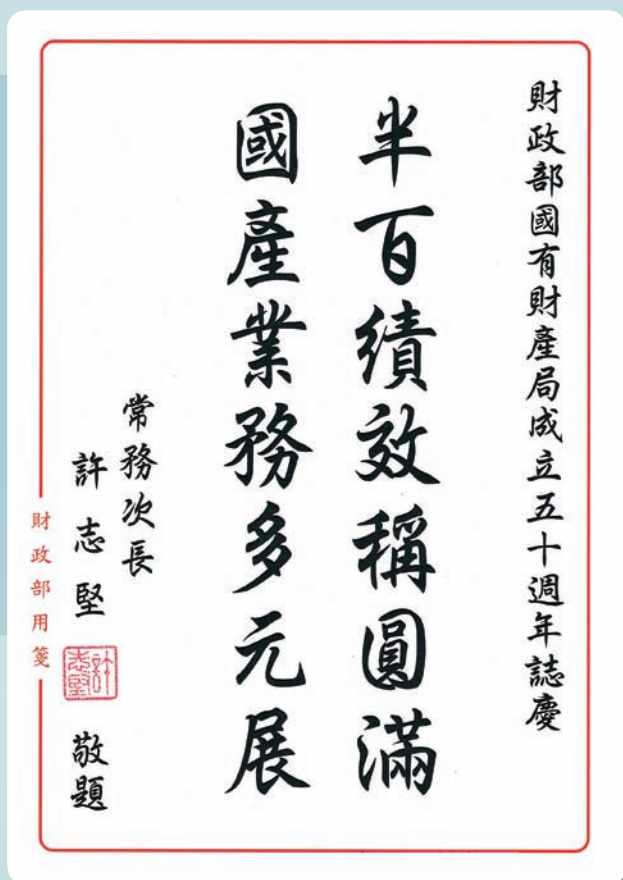 財政部國有財產局成立五十週年誌慶
半百績效稱圓滿
國產業務多元展
常務次長
許志堅
許志堅
敬題
財政部用箋